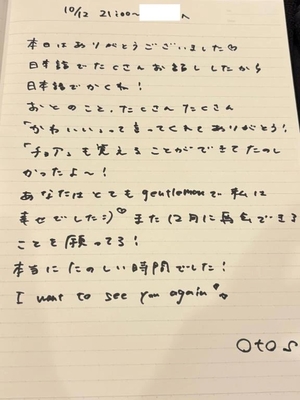 10/12 21:00〜 へ
本日はありがとうございました♡
日本語でたくさんお話ししたから
日本語でかくね!
おとのこと、たくさんたくさん
「かわいい」って言ってくれてありがとう!
「チョア」も覚えることができてたのし
かったよ〜!
あなたはとてもgentlemanで私は
幸せでした:)♡また12月に再会できる
ことを願ってる!
本当にたのしい時間でした!
I want to see you again
Oto